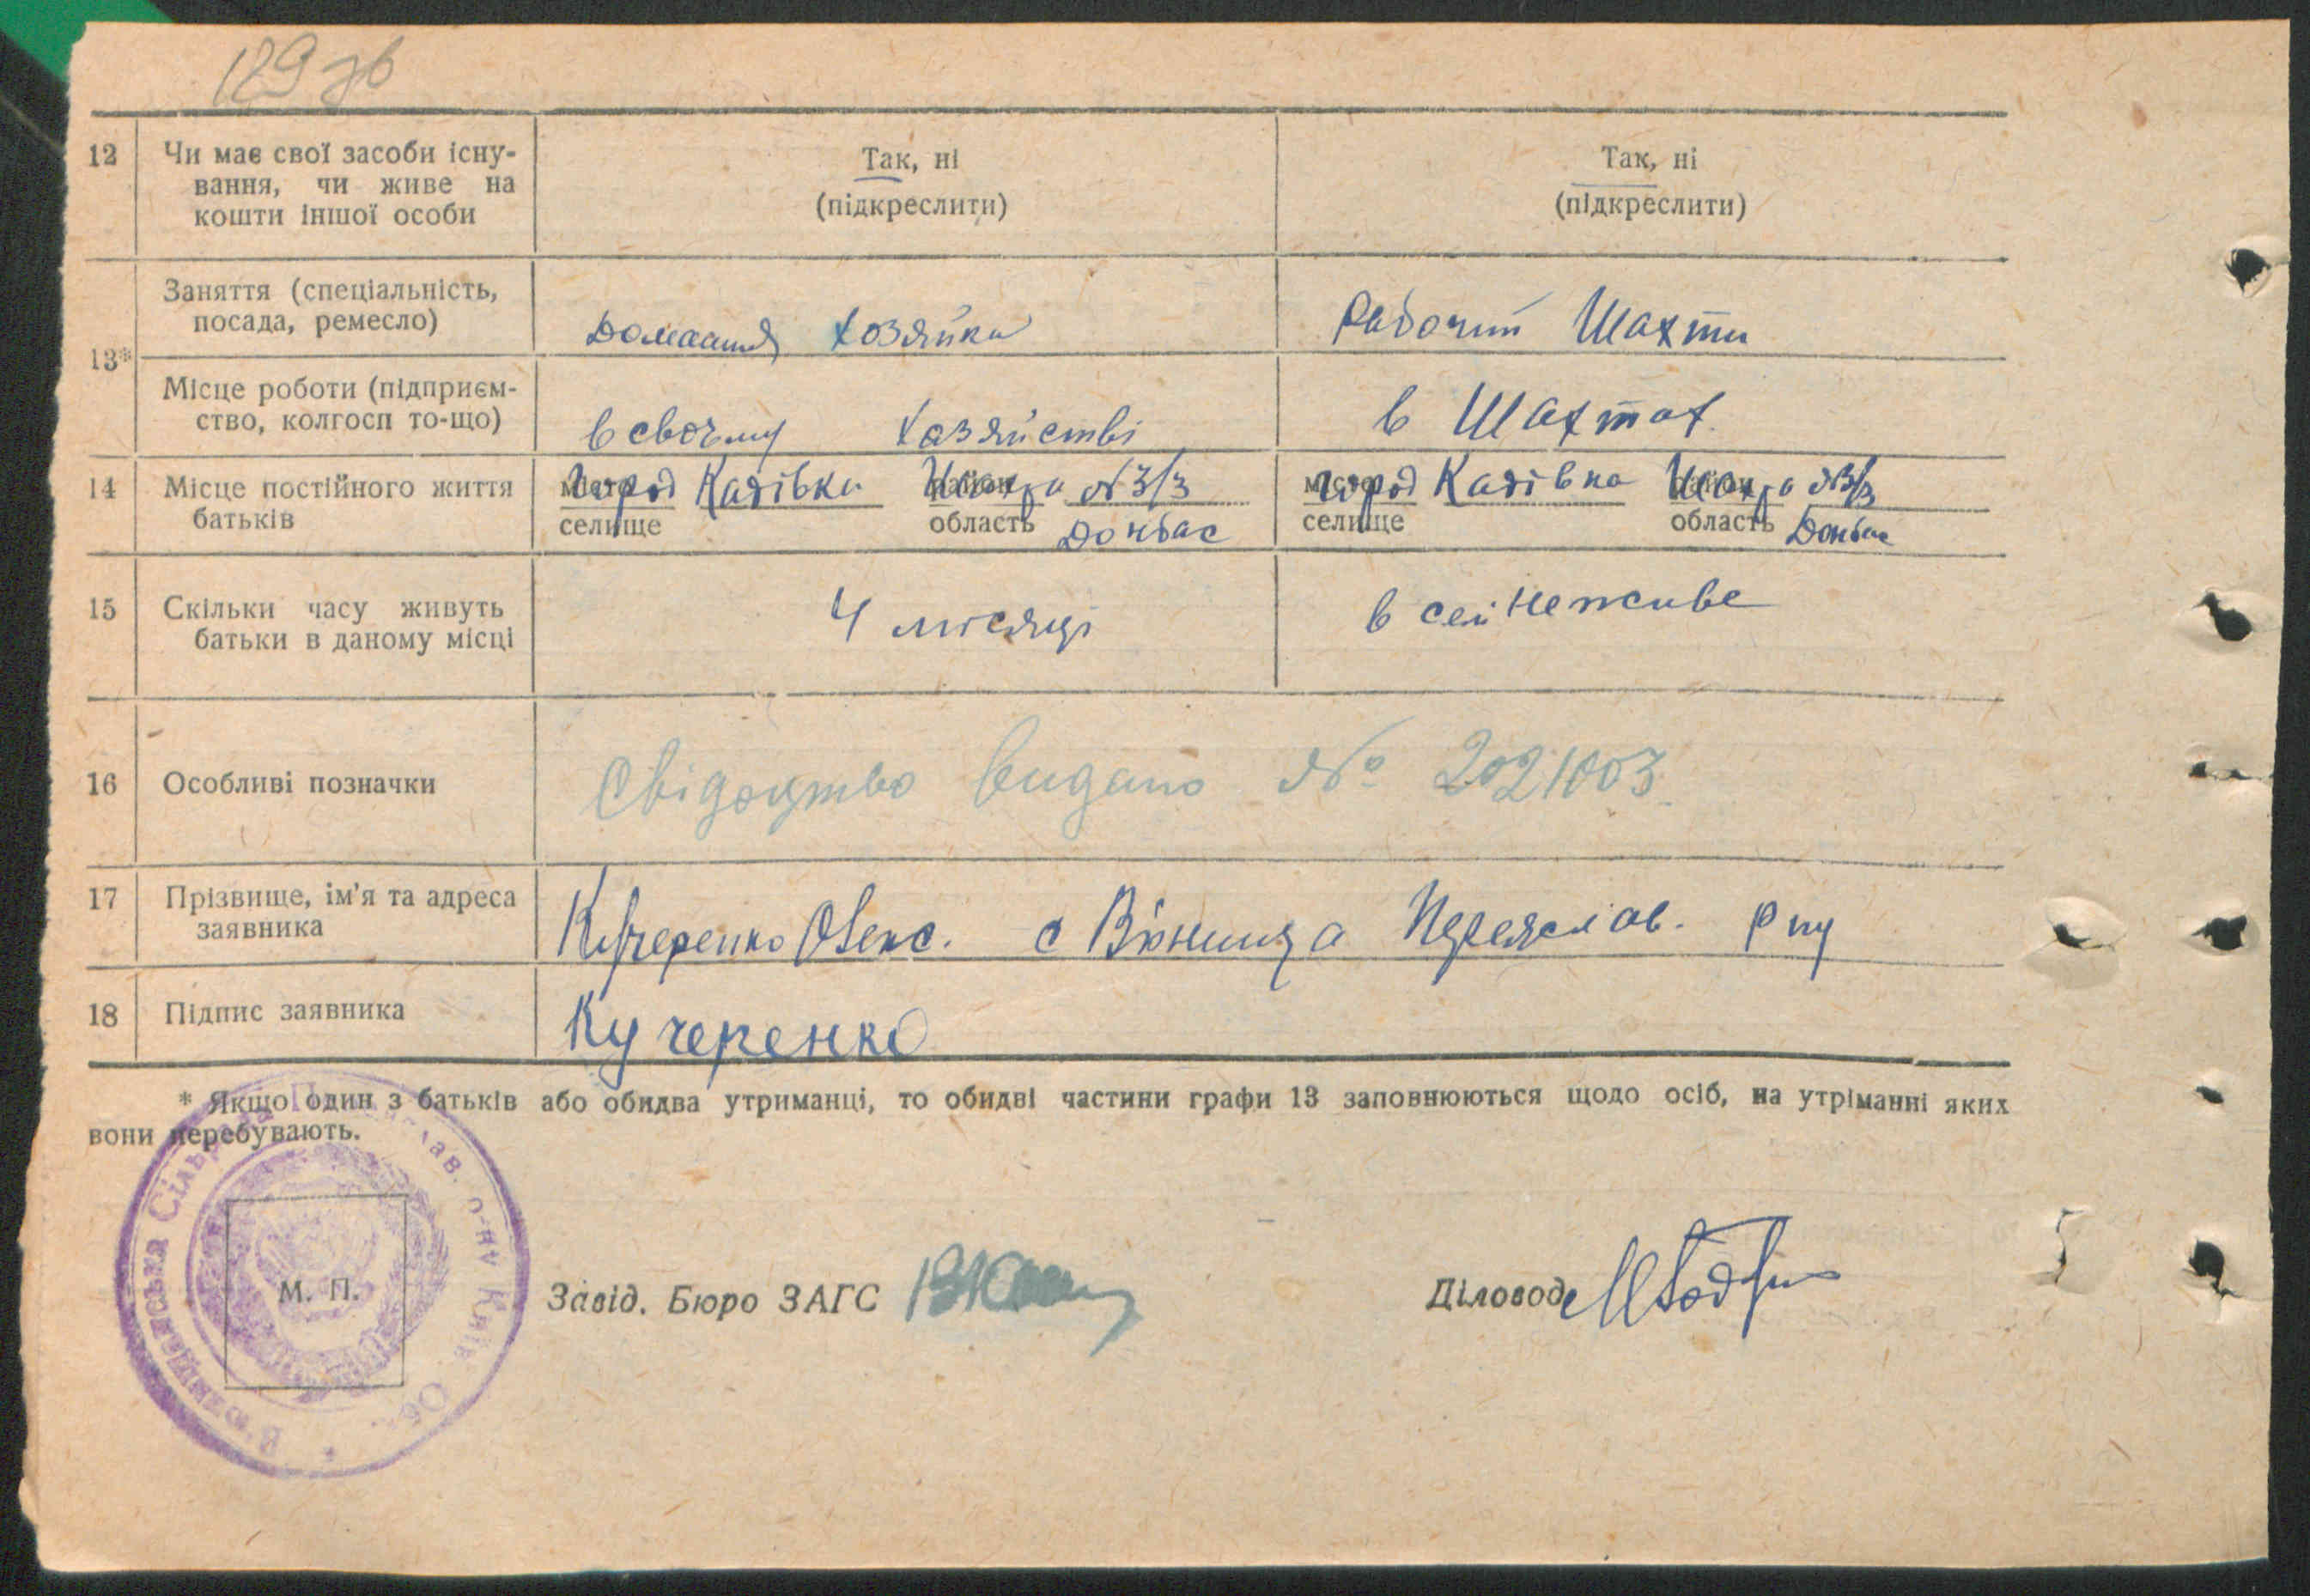 129 зв
12 Чи має свої засоби існу-
вання, чи живе на
кошти іншої особи
Так, ні
(підкреслити)
Так, ні
(підкреслити)
13*
Заняття (спеціальність,
посада, ремесло)
Домашня Хозяйка
Рабочий Шахти
Місце роботи (підприєм-
ство, колгосп то-що)
в своєму Хазяйстві
в Шахтах.
14 Місце постійного життя
батьків
місто город Кадівка район Шахта №3/3
селище область Донбас
місто город Кадівка район Шахта №3/3
селище область Донбас
15 Скільки часу живуть
батьки в даному місці
4 місяці
в селі не живе
16 Особливі позначки
Свідоцтво видано № 2021003
17 Прізвище, ім'я та адреса
заявника
Кучеренко Олекс. с В'юнища Переяслав. р ну
18 Підпис заявника
Кучеренко
* Якщо один з батьків або обидва утриманці, то обидві частини графи 13 заповнюються щодо осіб, на утріманні яких
вони перебувають.
В'юнищанська Сільрада Переяслав. р-ну Київ. Обл.
М. П.
Завід. Бюро ЗАГС
Діловод